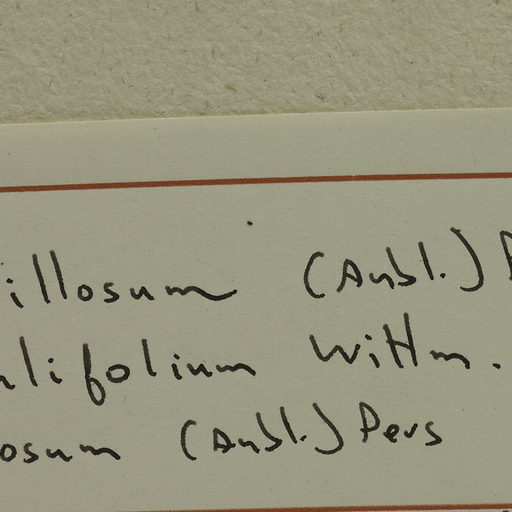 illosum (Aubl.) P
alifolium Wittm.
osum (Aubl.) Pers